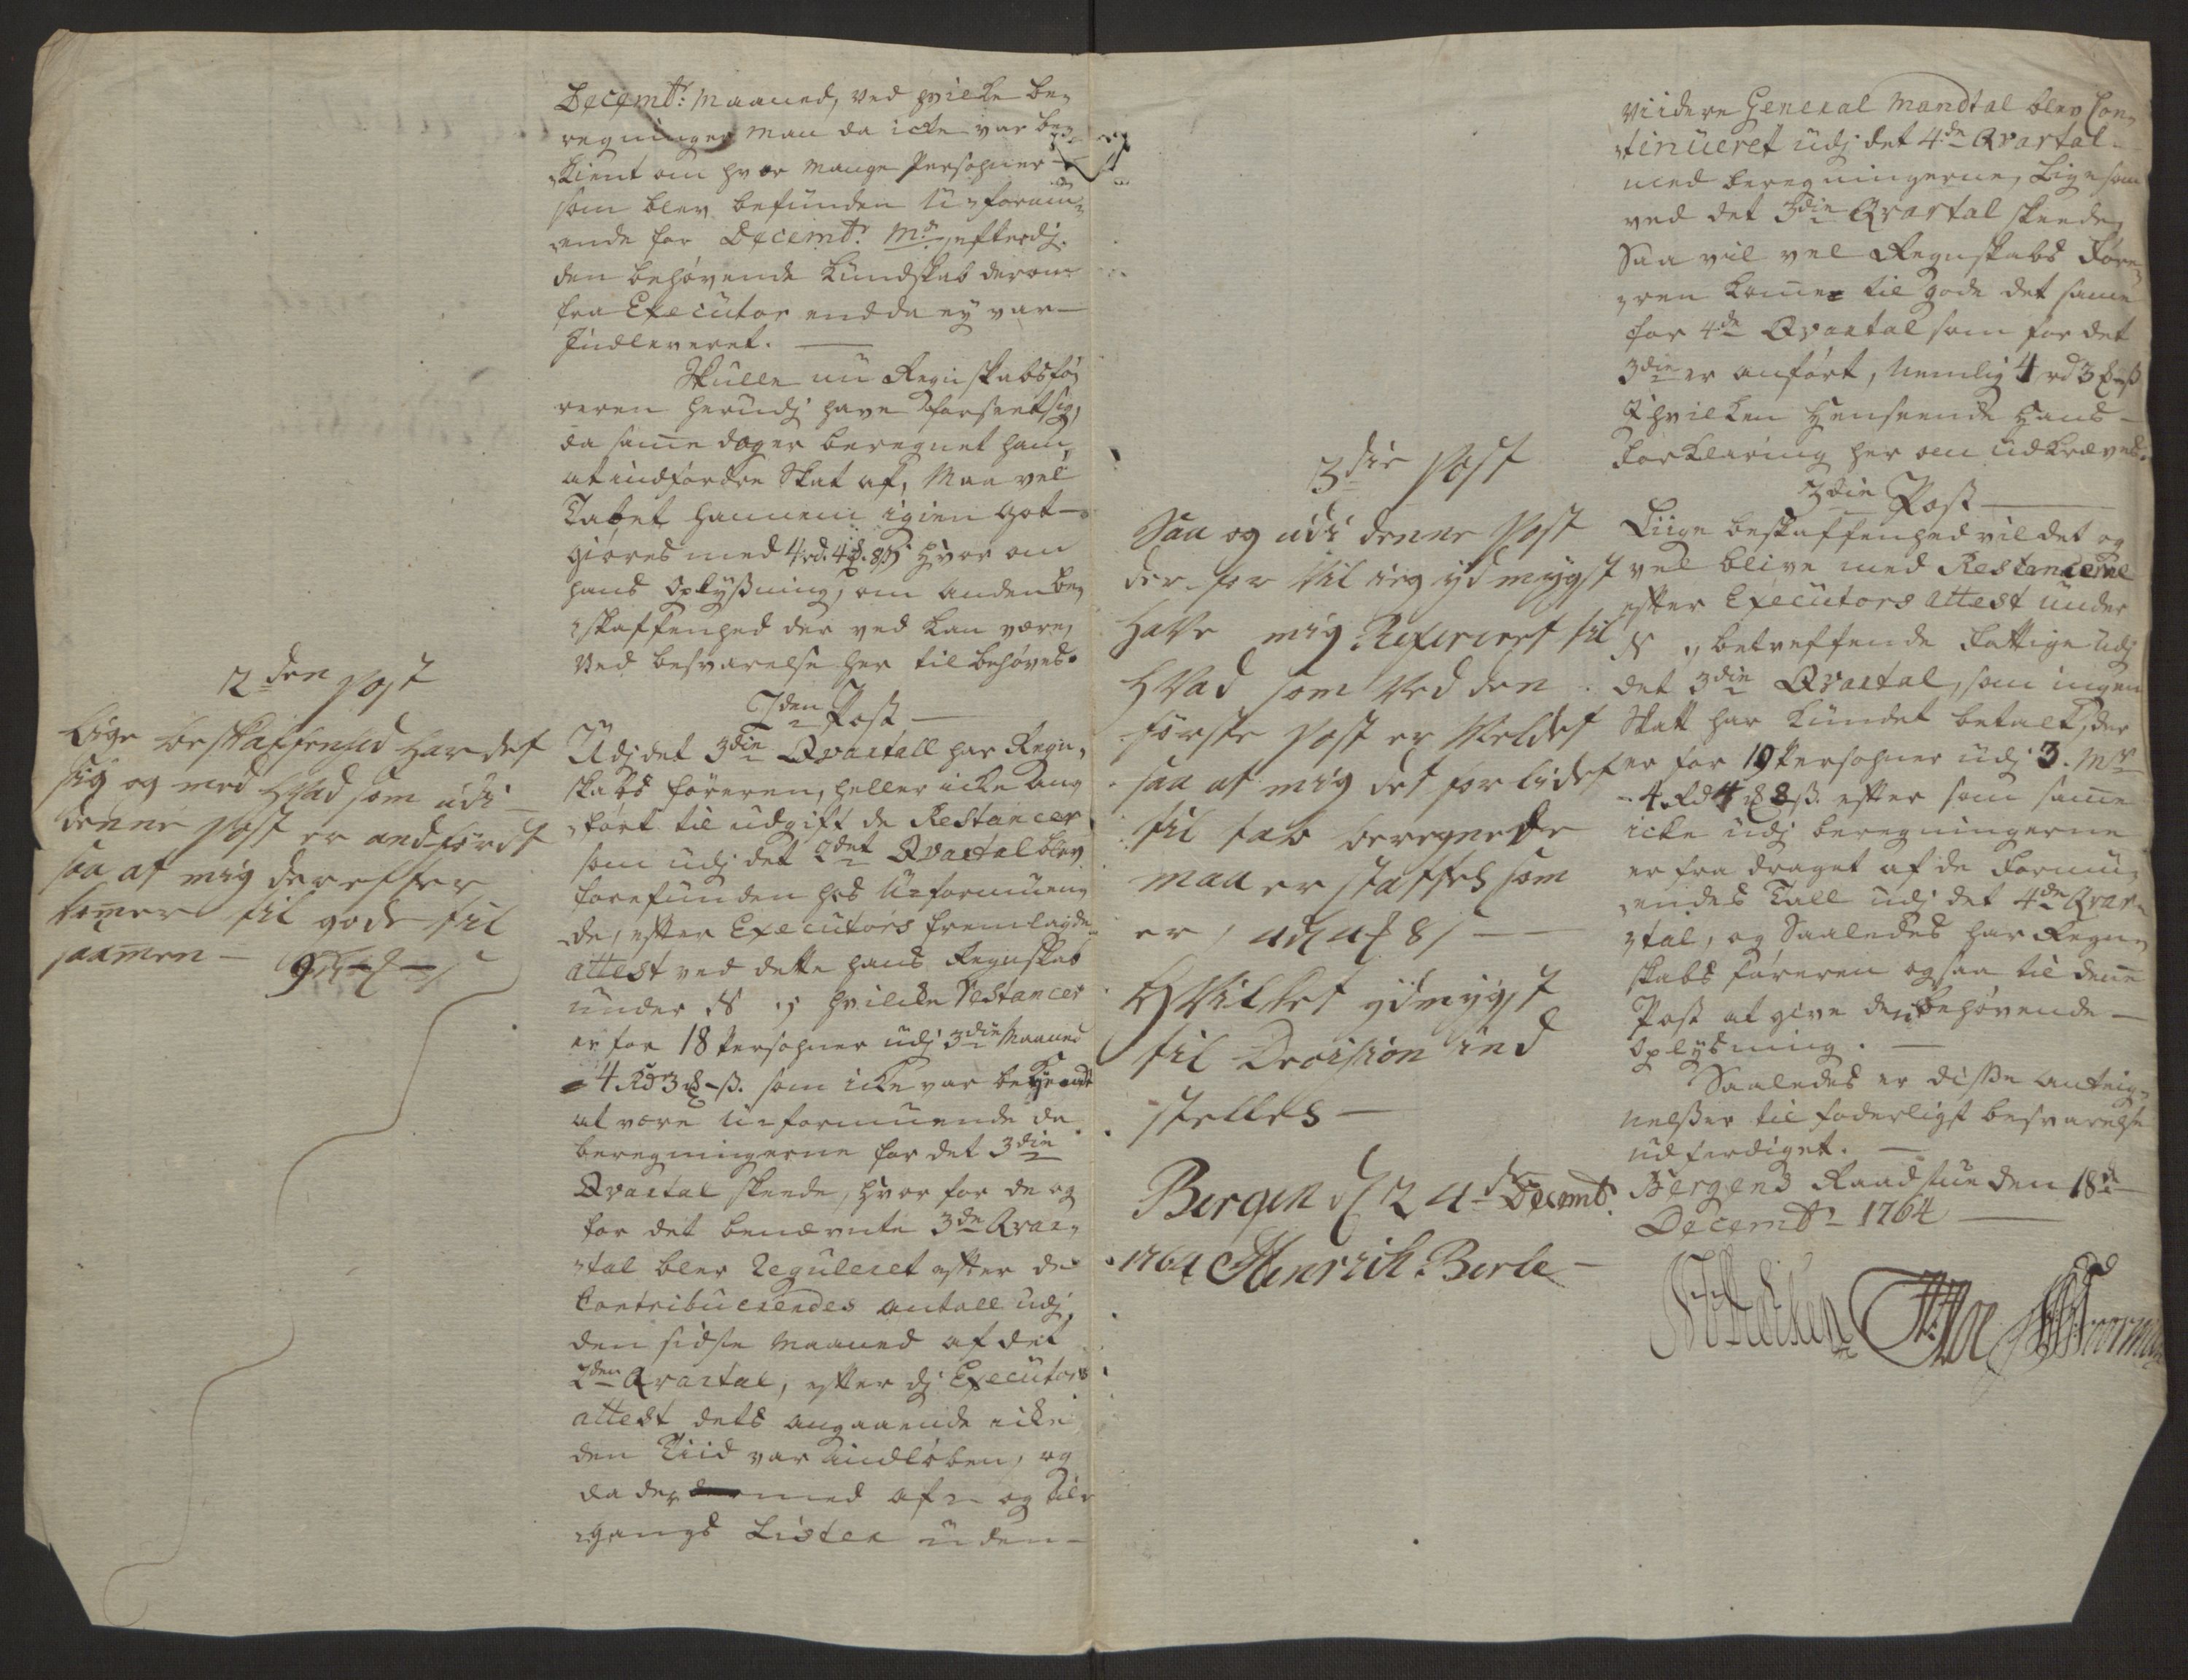 Decembr: Maaned, ved hvilke be-
regninger man da icke var be-
kient om hvor mange Persohner
som blev befunden U-formu-
ende for Decembr: Md: efterdj
den behøvende kundskab derom
fra Executor endda ey var
Indleveret.
Skulle nu Regnskabsfø-
reren herudj have forseet sig,
da samme dog er beregnet ham,
at indfordre Skat af, Maa vel
Tabet hannem igien got-
giøres med 4 rd. 4 8 ß hvor om
hans Oplyßning, om anden be-
skaffenhed der ved kan være,
Ved besvarelse her til behøves.
2den Post
Udj det 3die Qvartall har Regn-
skabs føreren, heller icke an-
ført til udgift de Restancer
som udj det 2det Qvartal blev
forefunden hos U-formuen-
de, efter Executors fremlagde
attest ved dette hans Regnskab
under hvilcke Restancer
er for 18 Persohner udj 3die Maaned
4 Rd 3 - ß. som icke var bekiendt
at være U-formuende da
beregningerne for det 3die
Qvartal skeede, hvor for de og
for det benævnte 3die Qvar-
tal blev Reguleret efter de
Contribuerendes antall udj
den sidste Maaned af det
2den Qvartal, efter dj Executors
attest dets angaaende icke
den Tiid var indløben, og
da der med af- og til-
gangs Lister uden
2den Post
Lige beskaffenhed har det
sig og med hvad som udi
denne Post er andført
saa at mig derefter
komer til gode til
saamen
3die Post
Saa og udi denne Post
der for vil ieg ydmygst
have mig Refereret til
hvad som ved den
første Post er Meldet
saa at mig det for lidet
til tab beregnede
maa er stattes som
er
hvilket ydmygst
til Decision ind
stelles
Bergen d 24de Decembr.
1764 Hinrich Berle
viidere General Mandtal blev Con-
tinueret udj det 4de Qvartal
med beregningerne, Lige som
ved det 3die Qvartal skeede,
Saa vil vel Regnskabs Føre-
ren komme til gode det samme
for 4de Qvartal som for det
3die er anført, Nemlig 4 rd 3 - ß
I hvilken Henseende Hans
Forklaring her om udkræves.
3die Post
Liige beskaffenhed vil det og
vel blive med Restancerne
efter Executors attest under
betreffende Fattige udj
det 3die Qvartal, som ingen
Skatt har kundet betalt, der
er for 19 Persohner udj 3. Mdr
4 Rd 4 8 ß. efter som samme
icke udj beregningerne
er fra draget af de Formu-
endes Tall udj det 4de Qvar-
tal, og Saaledes har Regn-
skabs føreren ogsaa til denne
Post at give den behøvende
Oplysning.
Saaledes er diße Anteig-
nelßer til foderligst besvarelse
udferdiget.
Bergens Raadstue den 18de
Decembr 1764